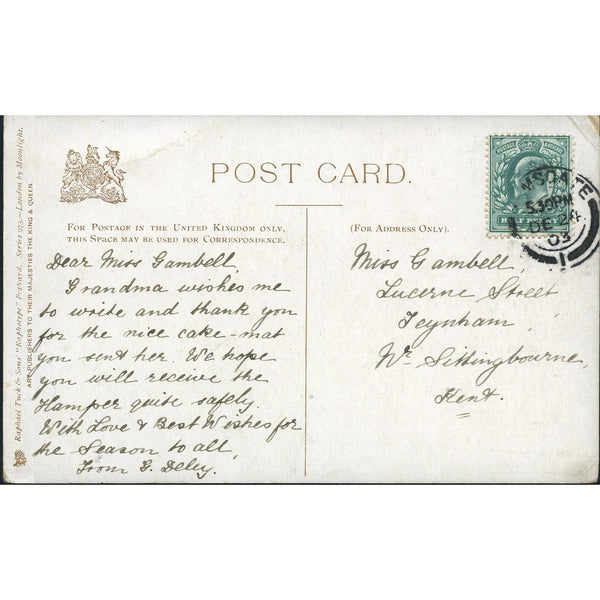 POST CARD.
FOR POSTAGE IN THE UNITED KINGDOM ONLY,
THIS SPACE MAY BE USED FOR CORRESPONDENCE.
(FOR ADDRESS ONLY).
Dear Miss Gambell,
Grandma wishes me
to write and thank you
for the nice cake-mat
you sent her. We hope
you will receive the
Hamper quite safely.
With Love & Best Wishes for
the Season to all,
From G. Deley.
Miss Gambell,
Lucerne Street
Teynham,
Nr. Sittingbourne,
Kent.
POSTAGE REVENUE
HALFPENNY
MSGATE
5.30PM
DE 24
03
1
Raphael Tuck & Sons' "Raphotype" Postcard. Series 1773.—London by Moonlight.
ART PUBLISHERS TO THEIR MAJESTIES THE KING & QUEEN.